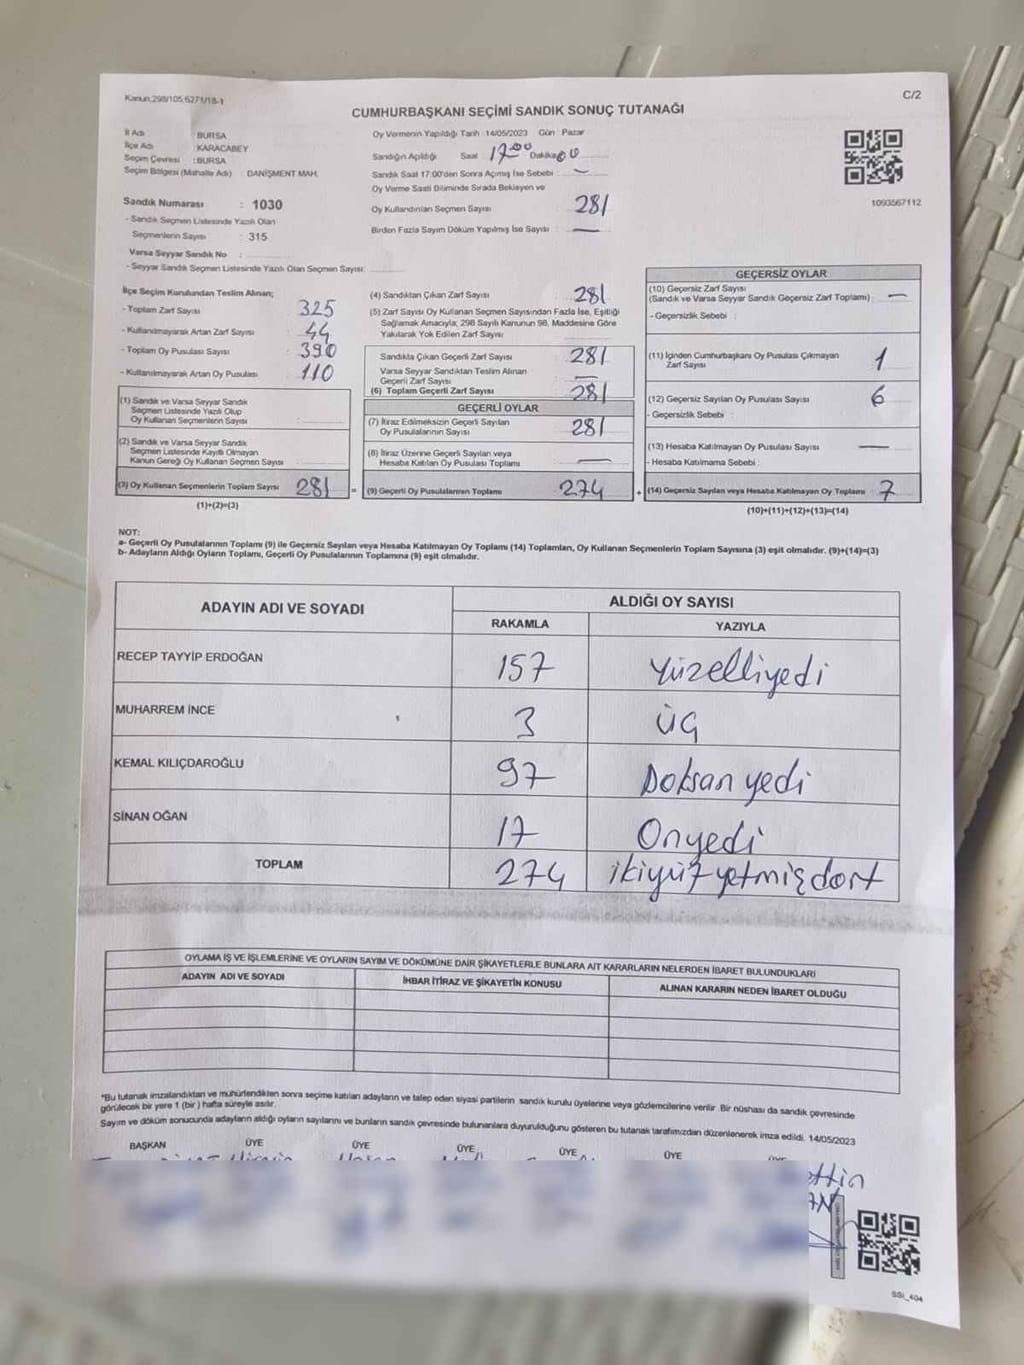 Kanun;298/105,6271/18-1
C/2
CUMHURBAŞKANI SEÇİMİ SANDIK SONUÇ TUTANAĞI
İl Adı : BURSA
İlçe Adı : KARACABEY
Seçim Çevresi : BURSA
Seçim Bölgesi (Mahalle Adı) DANİŞMENT MAH.
Sandık Numarası : 1030
- Sandık Seçmen Listesinde Yazılı Olan
Seçmenlerin Sayısı : 315
Varsa Seyyar Sandık No :
- Seyyar Sandık Seçmen Listesinde Yazılı Olan Seçmen Sayısı:
Oy Vermenin Yapıldığı Tarih :14/05/2023 Gün : Pazar
Sandığın Açıldığı Saat 17:00 Dakika 00
Sandık Saat 17:00'den Sonra Açılmış İse Sebebi : —
Oy Verme Saati Bitiminde Sırada Bekleyen ve
Oy Kullandırılan Seçmen Sayısı : 281
Birden Fazla Sayım Döküm Yapılmış İse Sayısı : —
1093567112
İlçe Seçim Kurulundan Teslim Alınan;
- Toplam Zarf Sayısı : 325
- Kullanılmayarak Artan Zarf Sayısı : 44
- Toplam Oy Pusulası Sayısı : 390
- Kullanılmayarak Artan Oy Pusulası : 110
(1) Sandık ve Varsa Seyyar Sandık
Seçmen Listesinde Yazılı Olup
Oy Kullanan Seçmenlerin Sayısı :
(2) Sandık ve Varsa Seyyar Sandık
Seçmen Listesinde Kayıtlı Olmayan
Kanun Gereği Oy Kullanan Seçmen Sayısı :
(3) Oy Kullanan Seçmenlerin Toplam Sayısı 281 =
(1)+(2)=(3)
(4) Sandıktan Çıkan Zarf Sayısı : 281
(5) Zarf Sayısı Oy Kullanan Seçmen Sayısından Fazla İse, Eşitliği
Sağlamak Amacıyla; 298 Sayılı Kanunun 98. Maddesine Göre
Yakılarak Yok Edilen Zarf Sayısı :
Sandıkta Çıkan Geçerli Zarf Sayısı : 281
Varsa Seyyar Sandıktan Teslim Alınan
Geçerli Zarf Sayısı : —
(6) Toplam Geçerli Zarf Sayısı : 281
GEÇERLİ OYLAR
(7) İtiraz Edilmeksizin Geçerli Sayılan
Oy Pusulalarının Sayısı : 281
(8) İtiraz Üzerine Geçerli Sayılan veya
Hesaba Katılan Oy Pusulası Toplamı : —
(9) Geçerli Oy Pusulalarının Toplamı : 274 +
GEÇERSİZ OYLAR
(10) Geçersiz Zarf Sayısı
(Sandık ve Varsa Seyyar Sandık Geçersiz Zarf Toplamı) : —
- Geçersizlik Sebebi :
(11) İçinden Cumhurbaşkanı Oy Pusulası Çıkmayan
Zarf Sayısı : 1
(12) Geçersiz Sayılan Oy Pusulası Sayısı : 6
- Geçersizlik Sebebi :
(13) Hesaba Katılmayan Oy Pusulası Sayısı : —
- Hesaba Katılmama Sebebi :
(14) Geçersiz Sayılan veya Hesaba Katılmayan Oy Toplamı : 7
(10)+(11)+(12)+(13)=(14)
NOT:
a- Geçerli Oy Pusulalarının Toplamı (9) ile Geçersiz Sayılan veya Hesaba Katılmayan Oy Toplamı (14) Toplamları, Oy Kullanan Seçmenlerin Toplam Sayısına (3) eşit olmalıdır. (9)+(14)=(3)
b- Adayların Aldığı Oyların Toplamı, Geçerli Oy Pusulalarının Toplamına (9) eşit olmalıdır.
ADAYIN ADI VE SOYADI
ALDIĞI OY SAYISI
RAKAMLA YAZIYLA
RECEP TAYYİP ERDOĞAN 157 Yüzelliyedi
MUHARREM İNCE 3 üç
KEMAL KILIÇDAROĞLU 97 Doksan yedi
SİNAN OĞAN 17 Onyedi
TOPLAM 274 ikiyüz yetmiş dört
OYLAMA İŞ VE İŞLEMLERİNE VE OYLARIN SAYIM VE DÖKÜMÜNE DAİR ŞİKAYETLERLE BUNLARA AİT KARARLARIN NELERDEN İBARET BULUNDUKLARI
ADAYIN ADI VE SOYADI İHBAR İTİRAZ VE ŞİKAYETİN KONUSU ALINAN KARARIN NEDEN İBARET OLDUĞU
*Bu tutanak imzalandıktan ve mühürlendikten sonra seçime katılan adayların ve talep eden siyasi partilerin sandık kurulu üyelerine veya gözlemcilerine verilir. Bir nüshası da sandık çevresinde
görülecek bir yere 1 (bir) hafta süreyle asılır.
Sayım ve döküm sonucunda adayların aldığı oyların sayılarını ve bunların sandık çevresinde bulunanlara duyurulduğunu gösteren bu tutanak tarafımızdan düzenlenerek imza edildi. 14/05/2023
BAŞKAN ÜYE ÜYE ÜYE ÜYE ÜYE
SSI_404